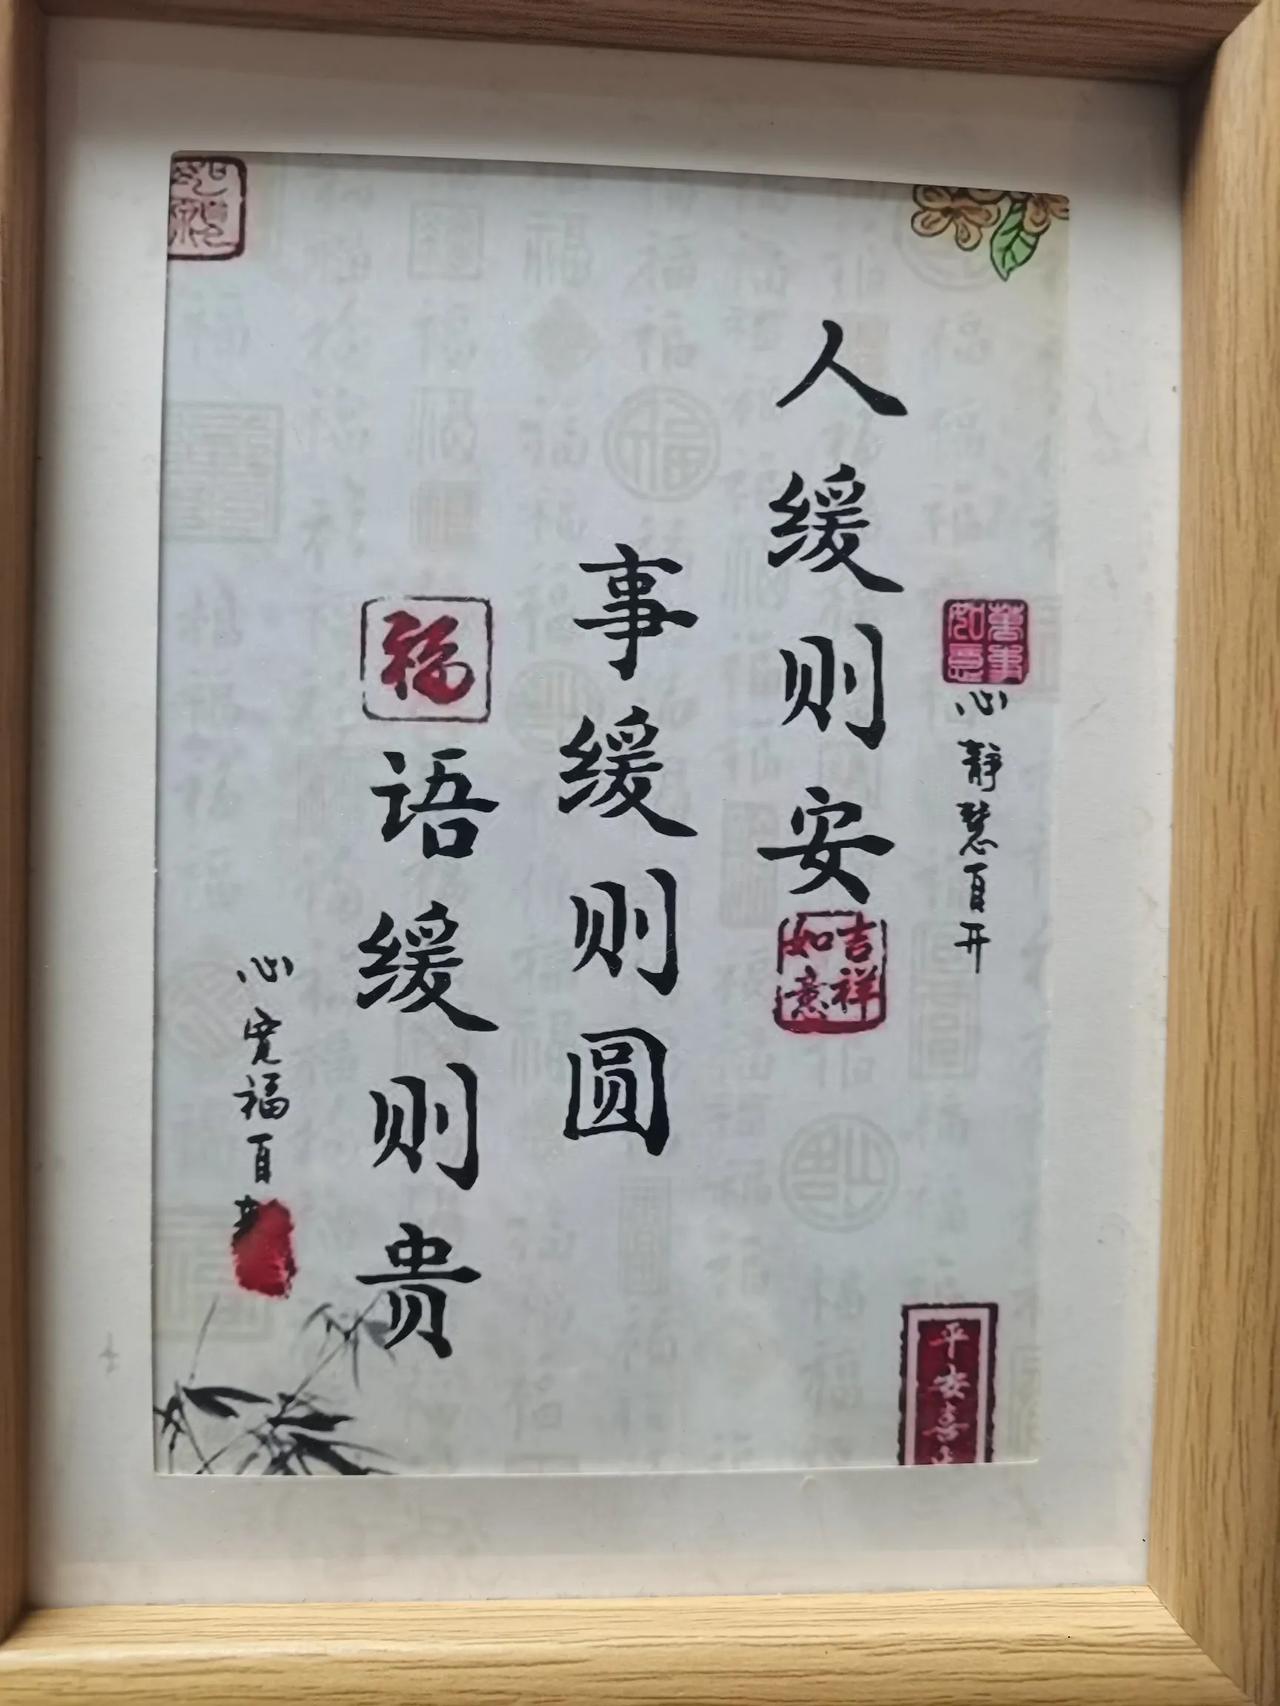 萬事如意
心静慧自开
人缓则安
吉祥如意
事缓则圆
福
语缓则贵
心宽福自来
平安喜